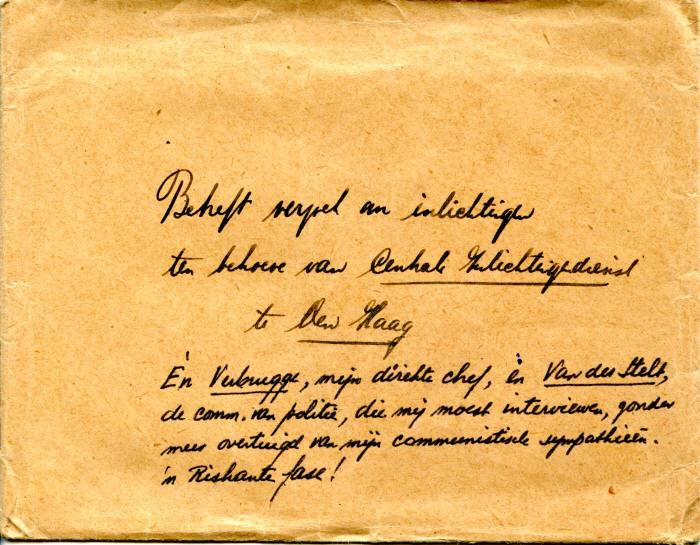 Betreft verzoek om inlichtingen
ten behoeve van Centrale Inlichtingendienst
te Den Haag
Èn Verbrugge, mijn direkte chef, èn Van der Stelt,
de comm. van politie, die mij moest interviewen,
mees overtuigd van mijn communistische sympathieën.
'n Riskante fase!